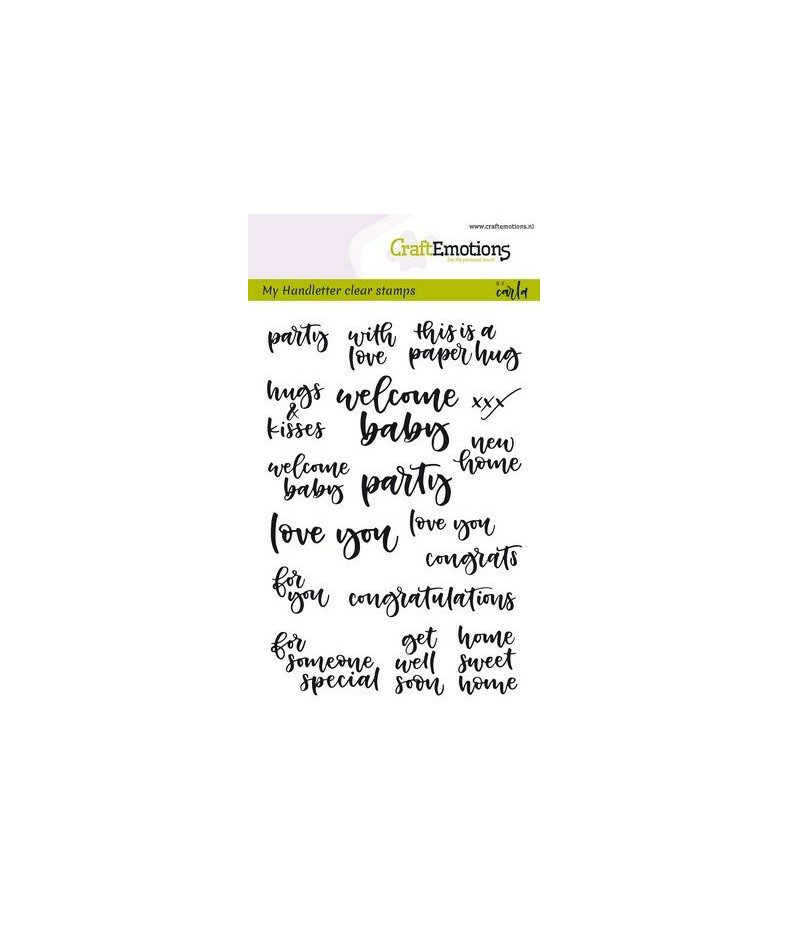 www.craftemotions.nl
CraftEmotions
For the personal touch
My Handletter clear stamps
BY
carla
party
with
love
this is a
paper hug
hugs
&
kisses
welcome
baby
xxx
new
home
welcome
baby
party
love you
love you
congrats
for
you
congratulations
for
someone
special
get
well
soon
home
sweet
home